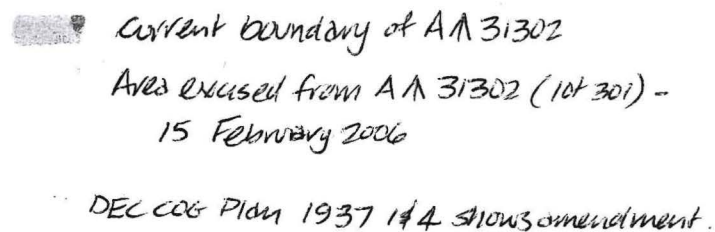 current boundary of A ∧ 31302
Area excised from A ∧ 31302 (lot 301) -
15 February 2006
DEC COG Plan 1937 1&4 shows amendment.